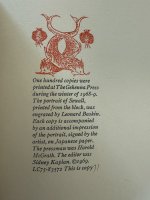 One hundred copies were
printed at The Gehenna Press
during the winter of 1968-9.
The portrait of Sewall,
printed from the block, was
engraved by Leonard Baskin.
Each copy is accompanied
by an additional impression
of the portrait, signed by the
artist, on Japanese paper.
The pressman was Harold
McGrath. The editor was
Sidney Kaplan.
This is copy